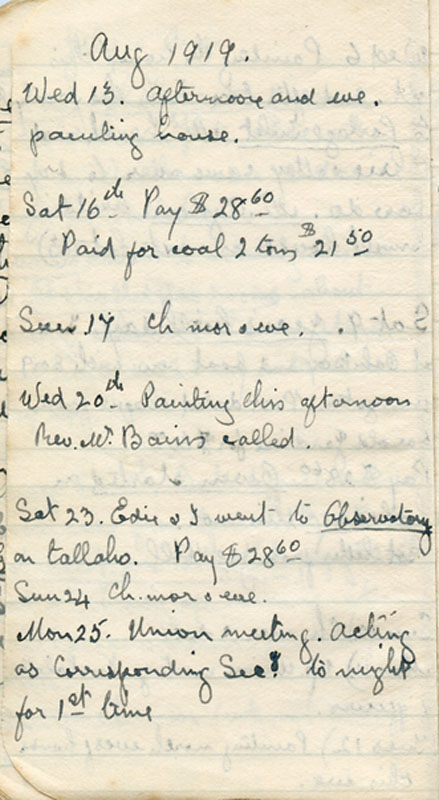 Aug 1919.
Wed 13. afternoon and eve.
painting house.
Sat 16th Pay $28 60
Paid for coal 2 tons $21 50
Sun 17 Ch mor & eve.
Wed 20th Painting this afternoon
Rev. Mr. Bains called.
Sat 23. Edie & I went to Observatory
on tallaho. Pay $28 60
Sun 24 Ch. mor & eve.
Mon 25. Union meeting. Acting
as Corresponding Secy. to night
for 1st time